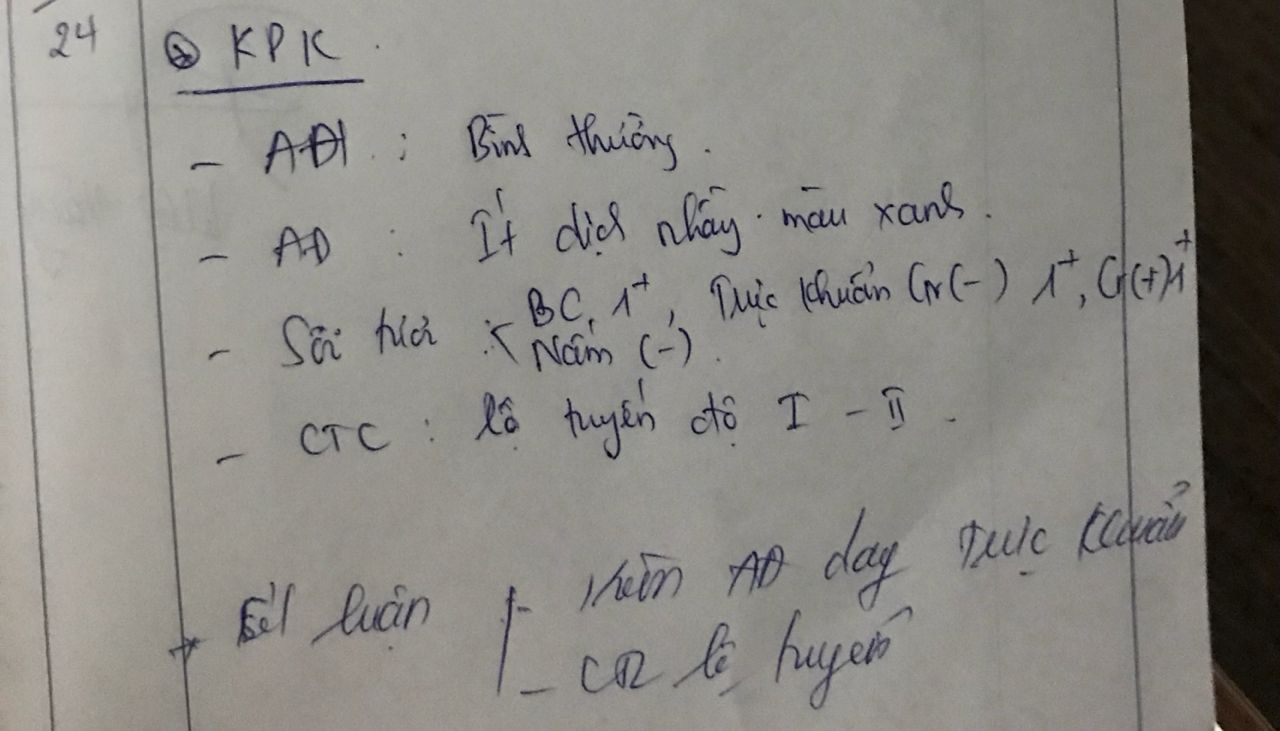 24 KPK
- AĐ : Bình thường.
- AĐ : Ít dịch nhầy màu xanh.
- Soi tươi : BC 1+, Trực khuẩn Gr(-) 1+, G(+) 1+
Nấm (-).
- CTC : lộ tuyến độ I - II.
→ Kết luận - Viêm AĐ do trực khuẩn
- lộ tuyến